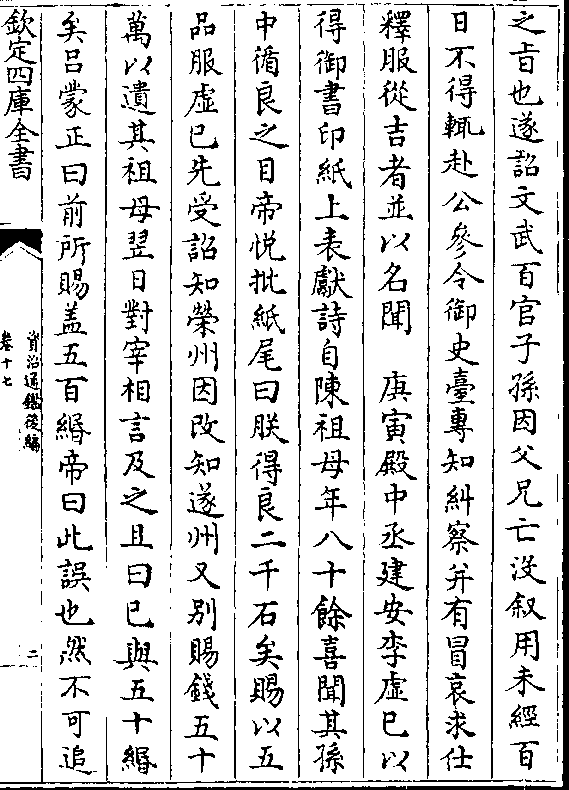 之㫖也遂詔文武百官子孫因父兄亡没叙用未經百
日不得輒赴公參令御史臺專知糾察并有冒哀求仕
釋服從吉者並以名聞　庚寅殿中丞建安李虚已以
得御書印紙上表獻詩自陳祖母年八十餘喜聞其孫
中循良之目帝悦批紙尾曰朕得良二千石矣賜以五
品服虚已先受詔知榮州因改知遂州又别賜錢五十
萬以遺其祖母翌日對宰相言及之且曰已與五十緡
矣吕蒙正曰前所賜盖五百緡帝曰此誤也然不可追
欽定四庫全書
資治通鑑後編
卷十七
二